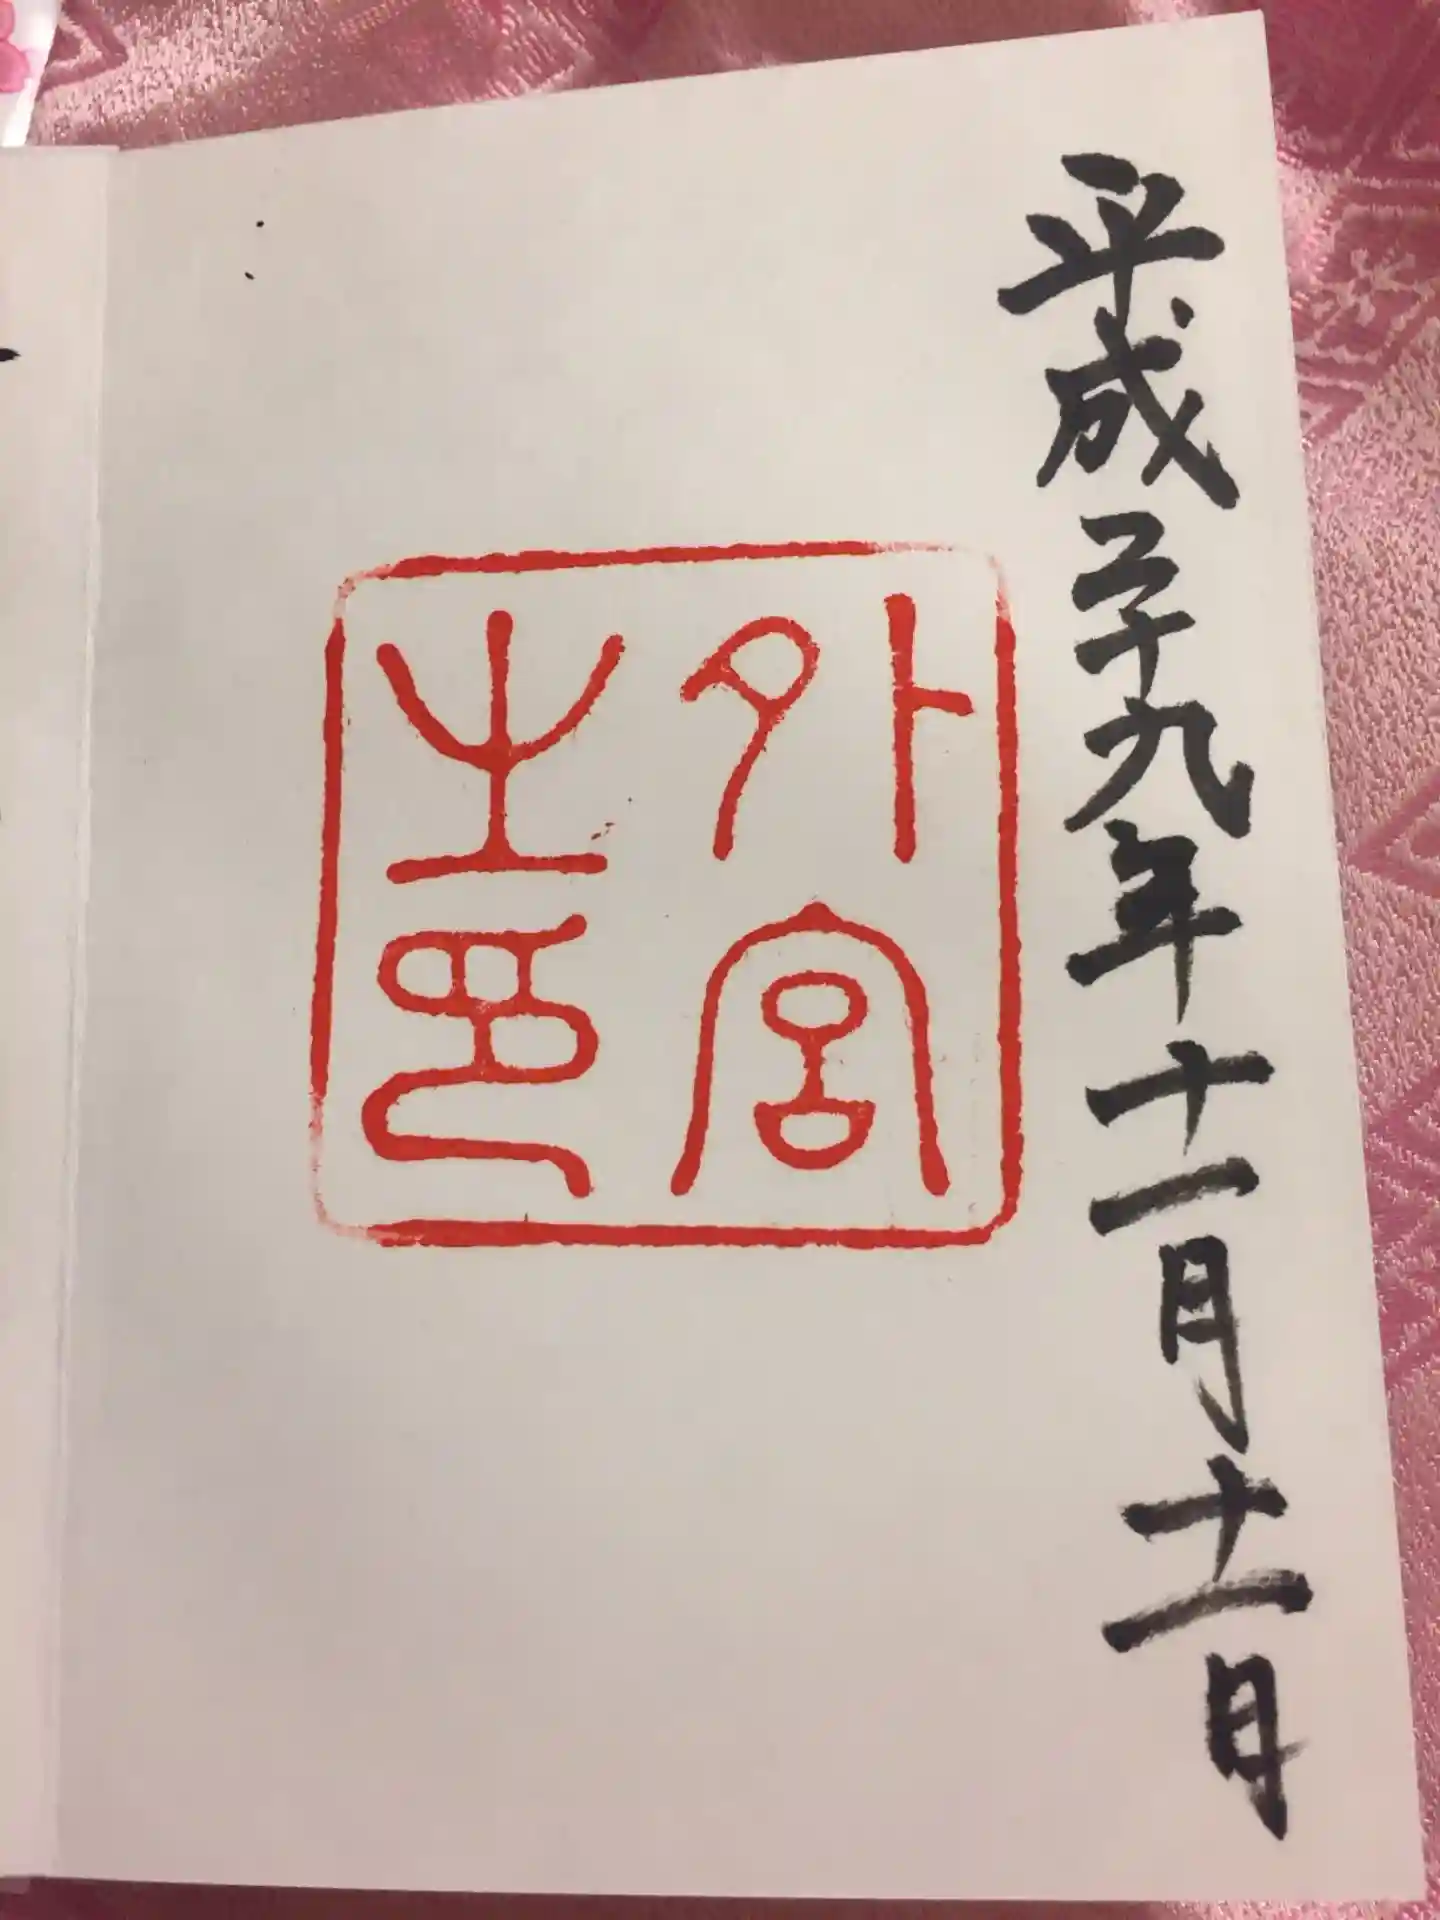 平成二十九年十一月十一日
外宮
之印